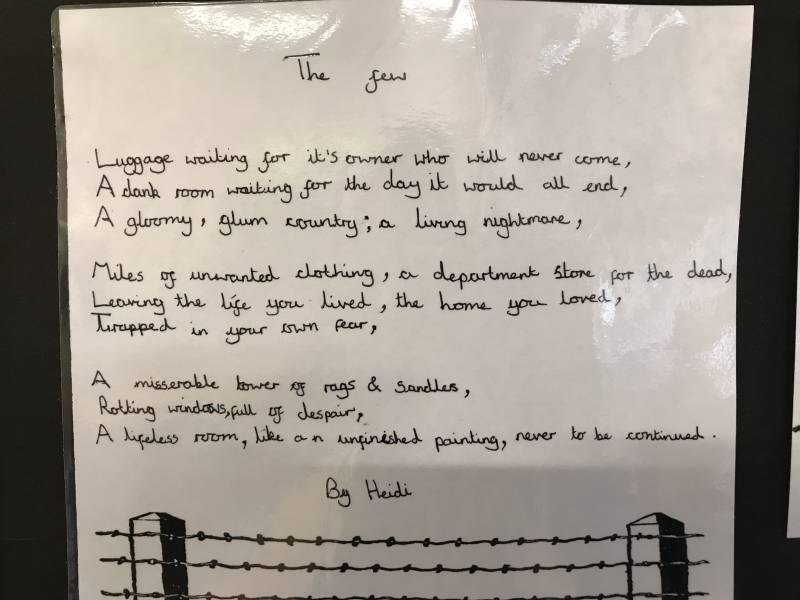 The few
Luggage waiting for it's owner who will never come,
A dank room waiting for the day it would all end,
A gloomy, glum country; a living nightmare,
Miles of unwanted clothing, a department store for the dead,
Leaving the life you lived, the home you loved,
Trapped in your own fear,
A misserable tower of rags & sandles,
Rotting windows, full of despair,
A lifeless room, like an unfinished painting, never to be continued.
By Heidi